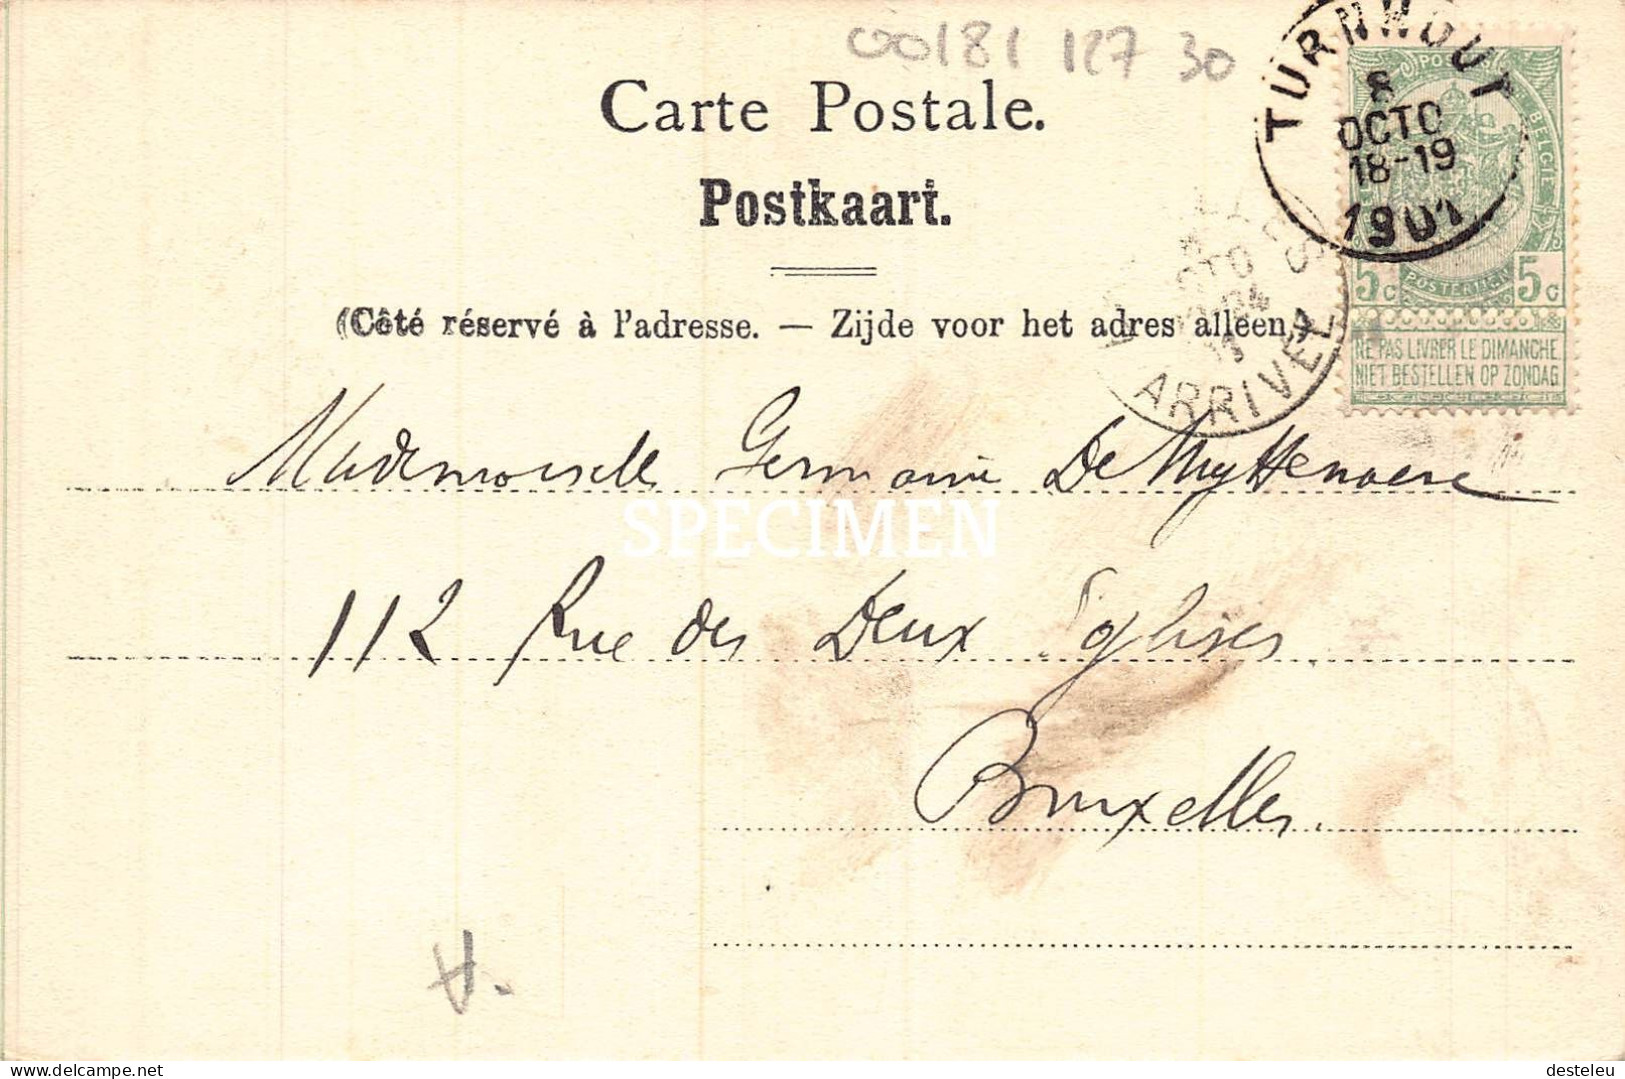 00181 127 30
Carte Postale.
Postkaart.
(Côté réservé à l'adresse. — Zijde voor het adres alleen.)
TURNHOUT
8
OCTO
18-19
1901
POSTES BELGIQUE
5c POSTERIJEN 5c
NE PAS LIVRER LE DIMANCHE
NIET BESTELLEN OP ZONDAG
ARRIVEE
Mademoiselle Germaine De Muyttenaere
SPECIMEN
112 Rue des Deux Eglises
Bruxelles.
delcampe.net
desteleu